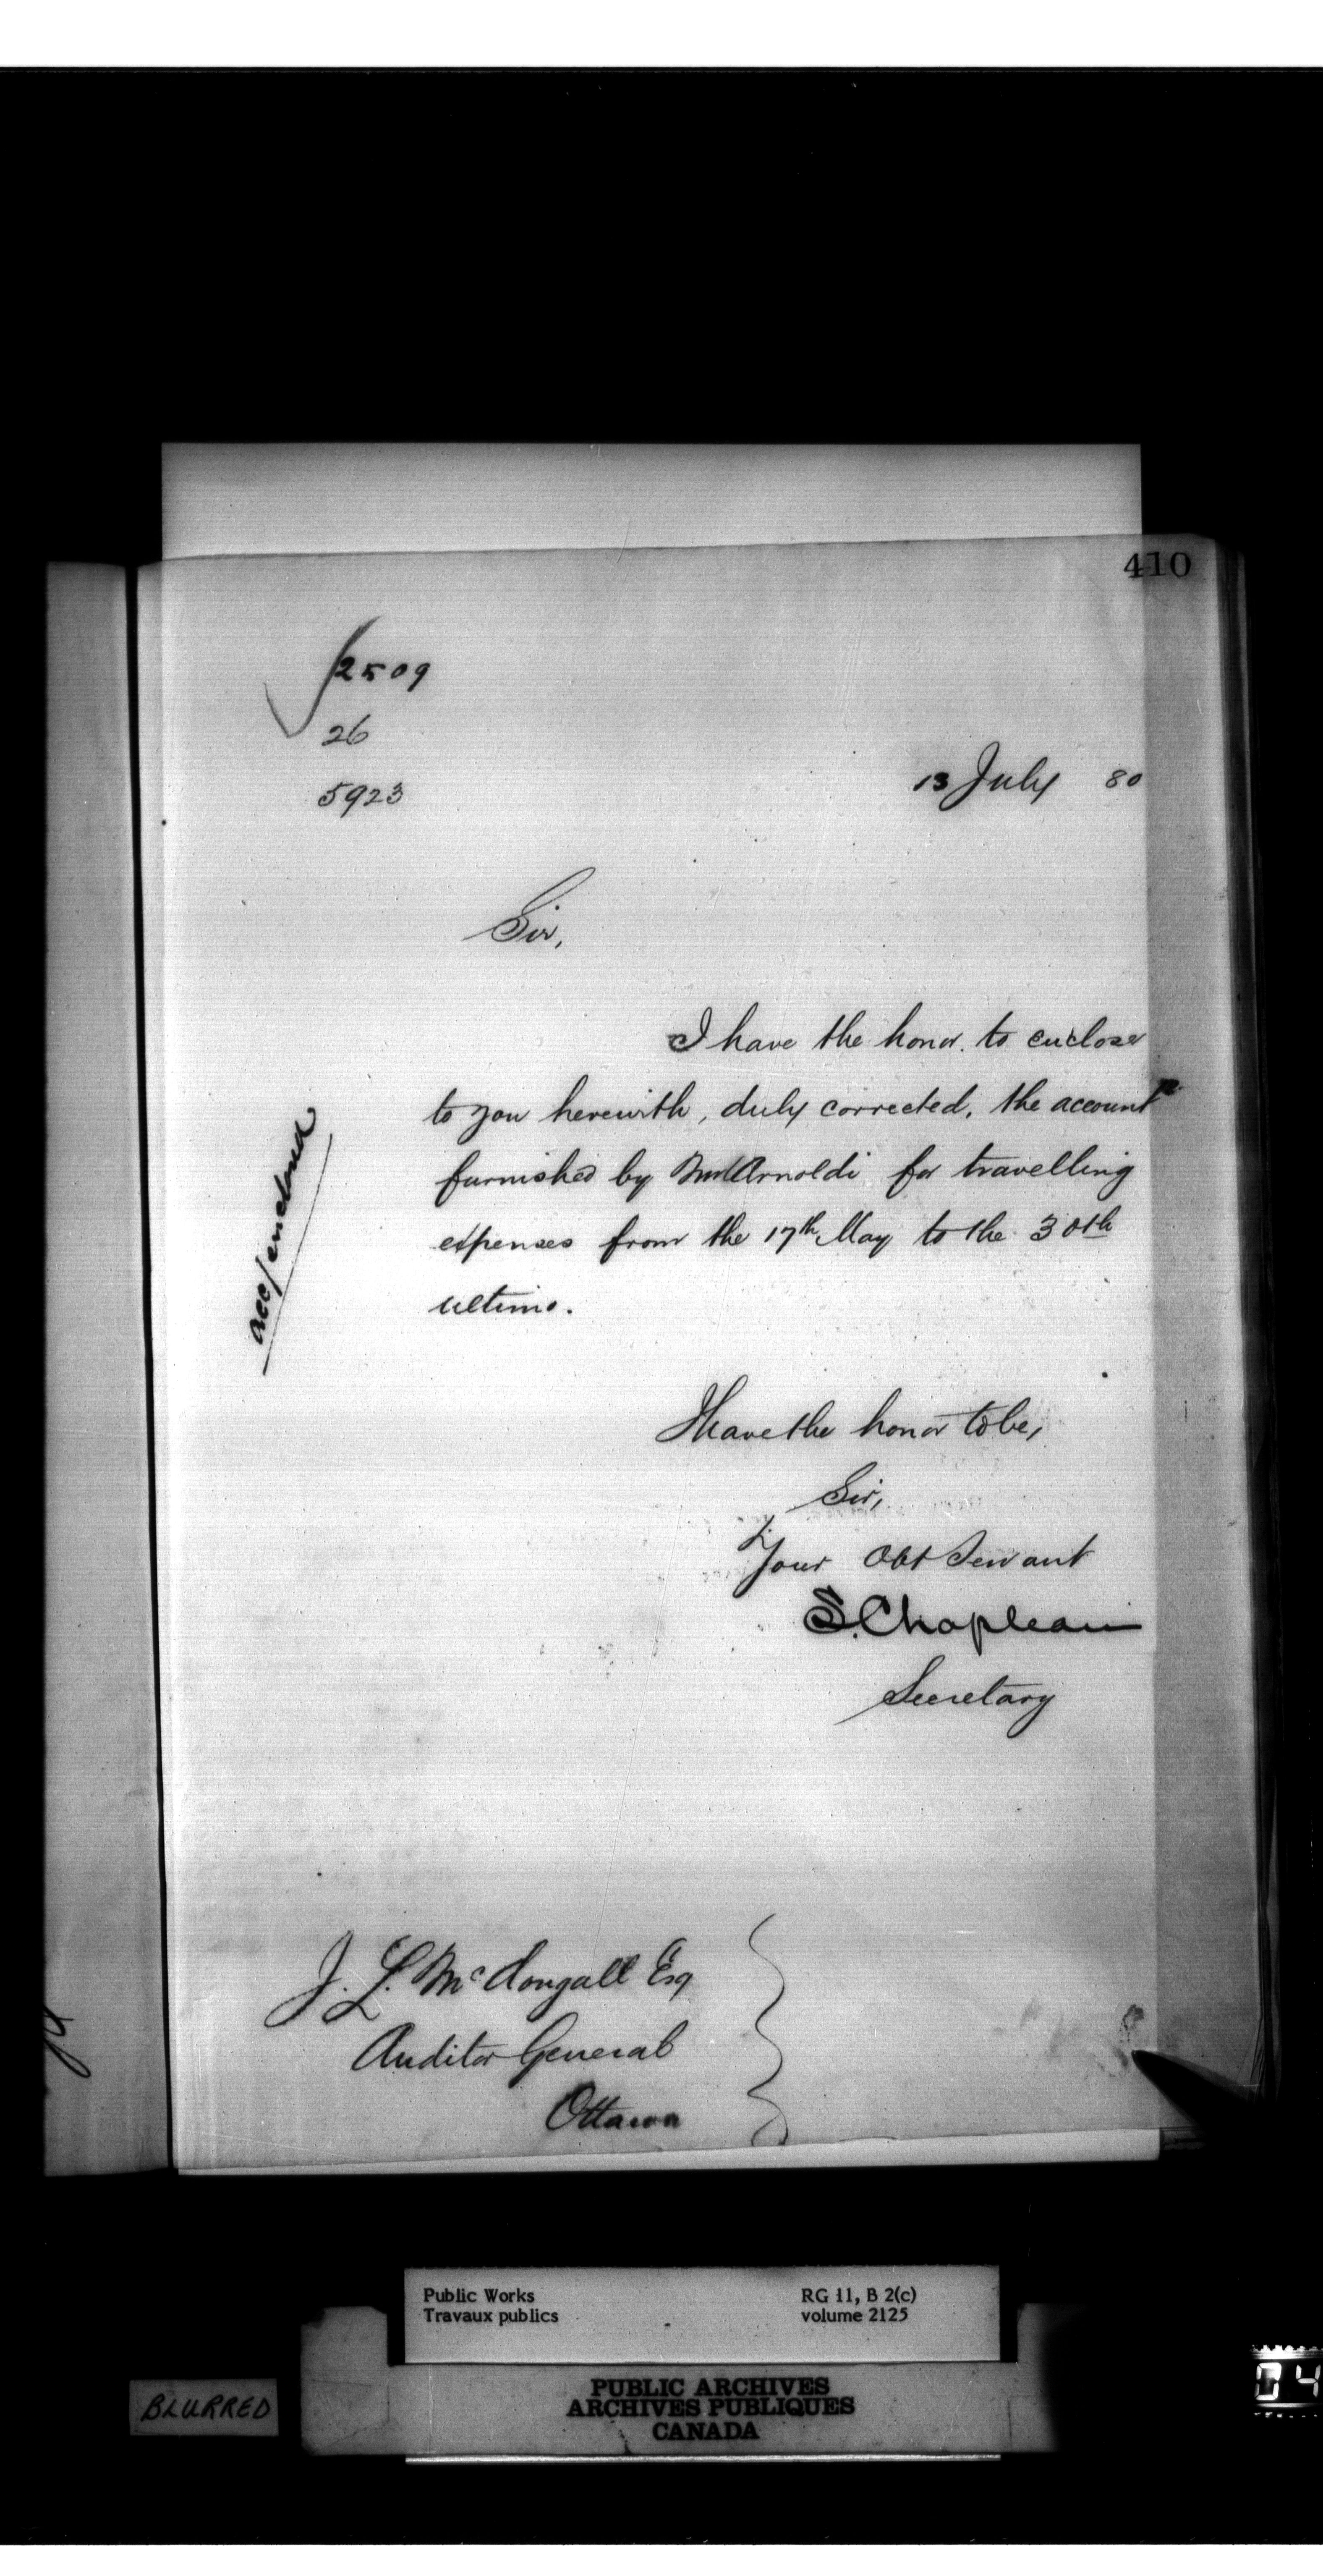 410
2509
26
5923
13 July 80
Sir,
I have the honor to enclose
to you herewith, duly corrected, the account
furnished by Mr Arnoldi for travelling
expenses from the 17th May to the 30th
ultimo.
acc/enclosed
I have the honor to be,
Sir,
Your Obt Servant
S. Chapleau
Secretary
J. L. McDougall Esq
Auditor General
Ottawa
Public Works
Travaux publics
RG 11, B 2(c)
volume 2125
BLURRED
PUBLIC ARCHIVES
ARCHIVES PUBLIQUES
CANADA
04